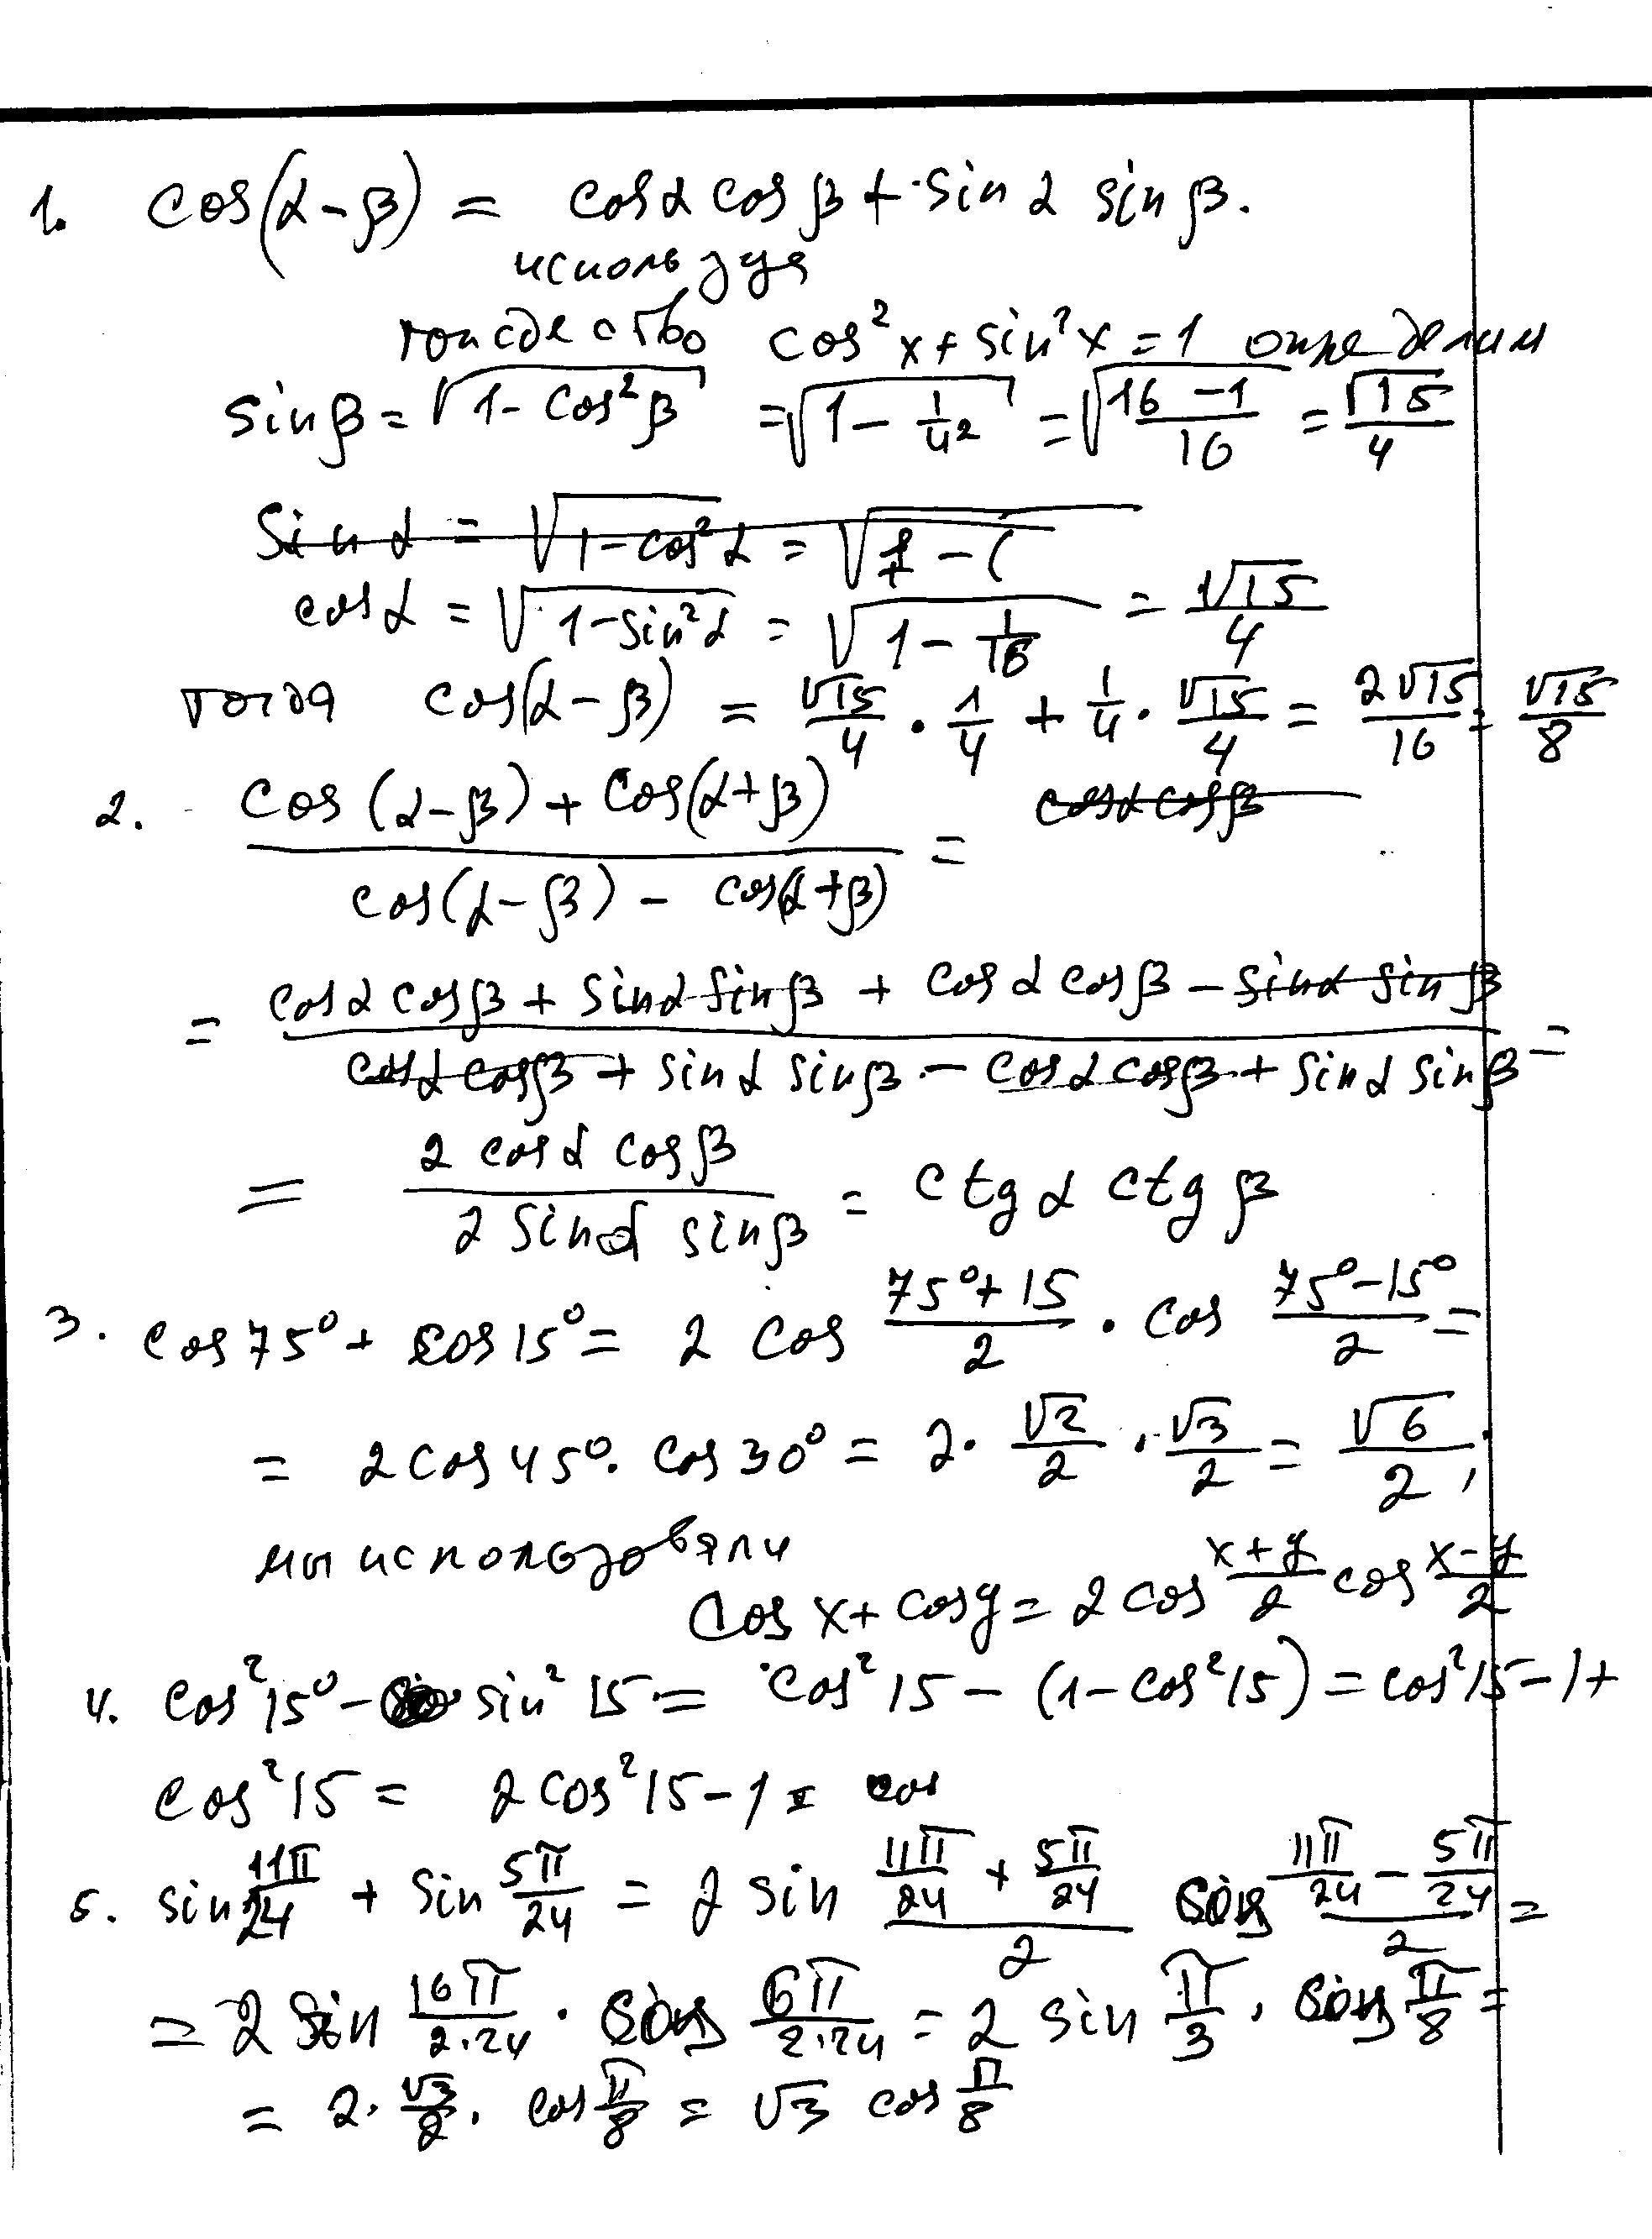 1. cos(α-β) = cosα cosβ + sinα sinβ.
используя
тождество cos²x + sin²x = 1 определим
sinβ = √(1 - cos²β) = √(1 - 1/4²) = √((16-1)/16) = √15/4
sinα = √(1-cos²α) = √(1 -
cosα = √(1-sin²α) = √(1 - 1/16) = √15/4
тогда cos(α-β) = √15/4 · 1/4 + 1/4 · √15/4 = 2√15/16 = √15/8
2. (cos(α-β) + cos(α+β))/(cos(α-β) - cos(α+β)) = cosα cosβ
= (cosα cosβ + sinα sinβ + cosα cosβ - sinα sinβ)/(cosα cosβ + sinα sinβ - cosα cosβ + sinα sinβ) =
= (2 cosα cosβ)/(2 sinα sinβ) = ctgα ctgβ
3. cos75° + cos15° = 2 cos (75°+15)/2 · cos (75°-15°)/2 =
= 2cos45° · cos30° = 2 · √2/2 · √3/2 = √6/2;
мы использовали
cosx + cosy = 2cos (x+y)/2 cos (x-y)/2
4. cos²15° - sin²15 = cos²15 - (1-cos²15) = cos²15 - 1 +
cos²15 = 2cos²15 - 1 = cos
5. sin 11π/24 + sin 5π/24 = 2 sin (11π/24 + 5π/24)/2 cos (11π/24 - 5π/24)/2 =
= 2 sin 16π/(2·24) · cos 6π/(2·24) = 2 sin π/3 · cos π/8 =
= 2 · √3/2 · cos π/8 = √3 cos π/8